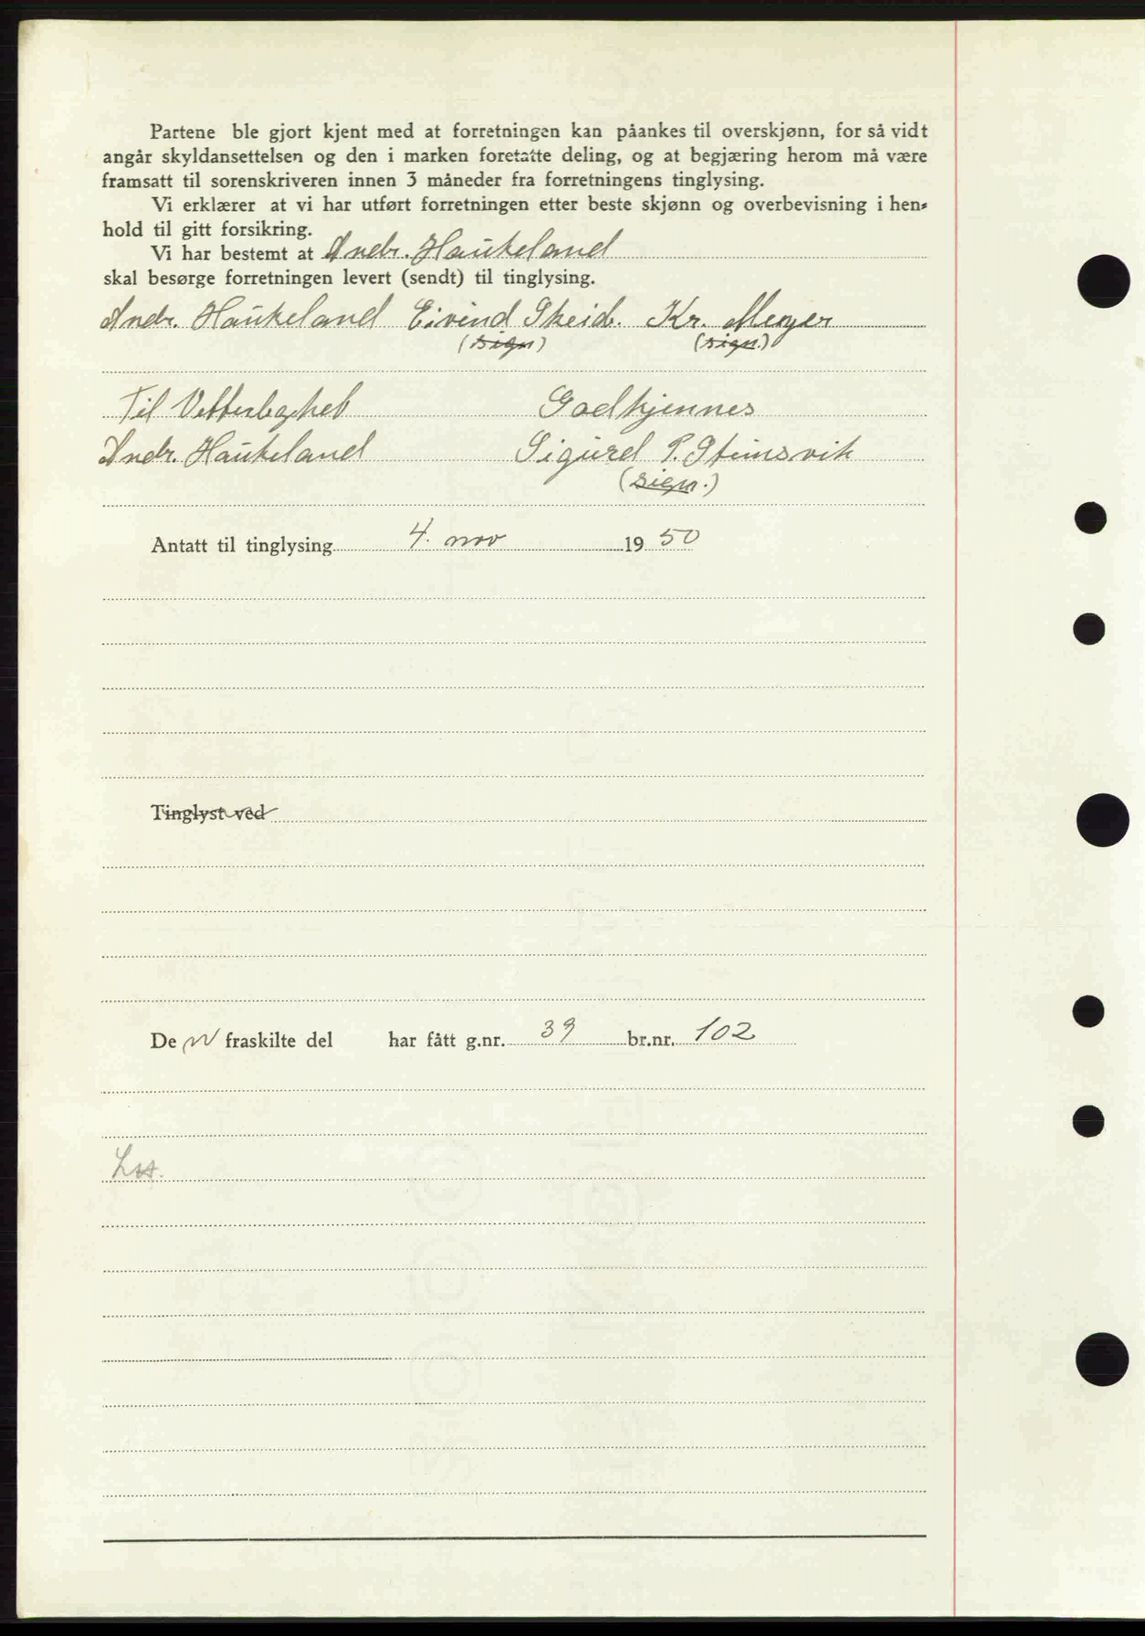 Partene ble gjort kjent med at forretningen kan påankes til overskjønn, for så vidt
angår skyldansettelsen og den i marken foretatte deling, og at begjæring herom må være
framsatt til sorenskriveren innen 3 måneder fra forretningens tinglysing.
Vi erklærer at vi har utført forretningen etter beste skjønn og overbevisning i hen-
hold til gitt forsikring.
Vi har bestemt at Andr. Haukeland
skal besørge forretningen levert (sendt) til tinglysing.
Andr. Haukeland Eivind Skeid. Kr. Meyer
(sign) (sign.)
Til Vitterlighet Godkjennes
Andr. Haukeland Sigurd P. Steinsvik
(sign.)
Antatt til tinglysing 4. nov 1950
Tinglyst ved
De n fraskilte del har fått g.nr. 39 br.nr. 102